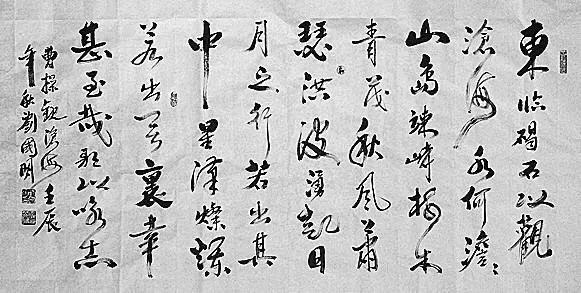 東臨碣石以觀
滄海水何澹〻
山島竦峙樹木
青茂秋風蕭
瑟洪波湧起日
月之行若出其
中星漢燦爛
若出其裏幸
甚至哉歌以詠志
曹操觀滄海壬辰
年秋劉國明